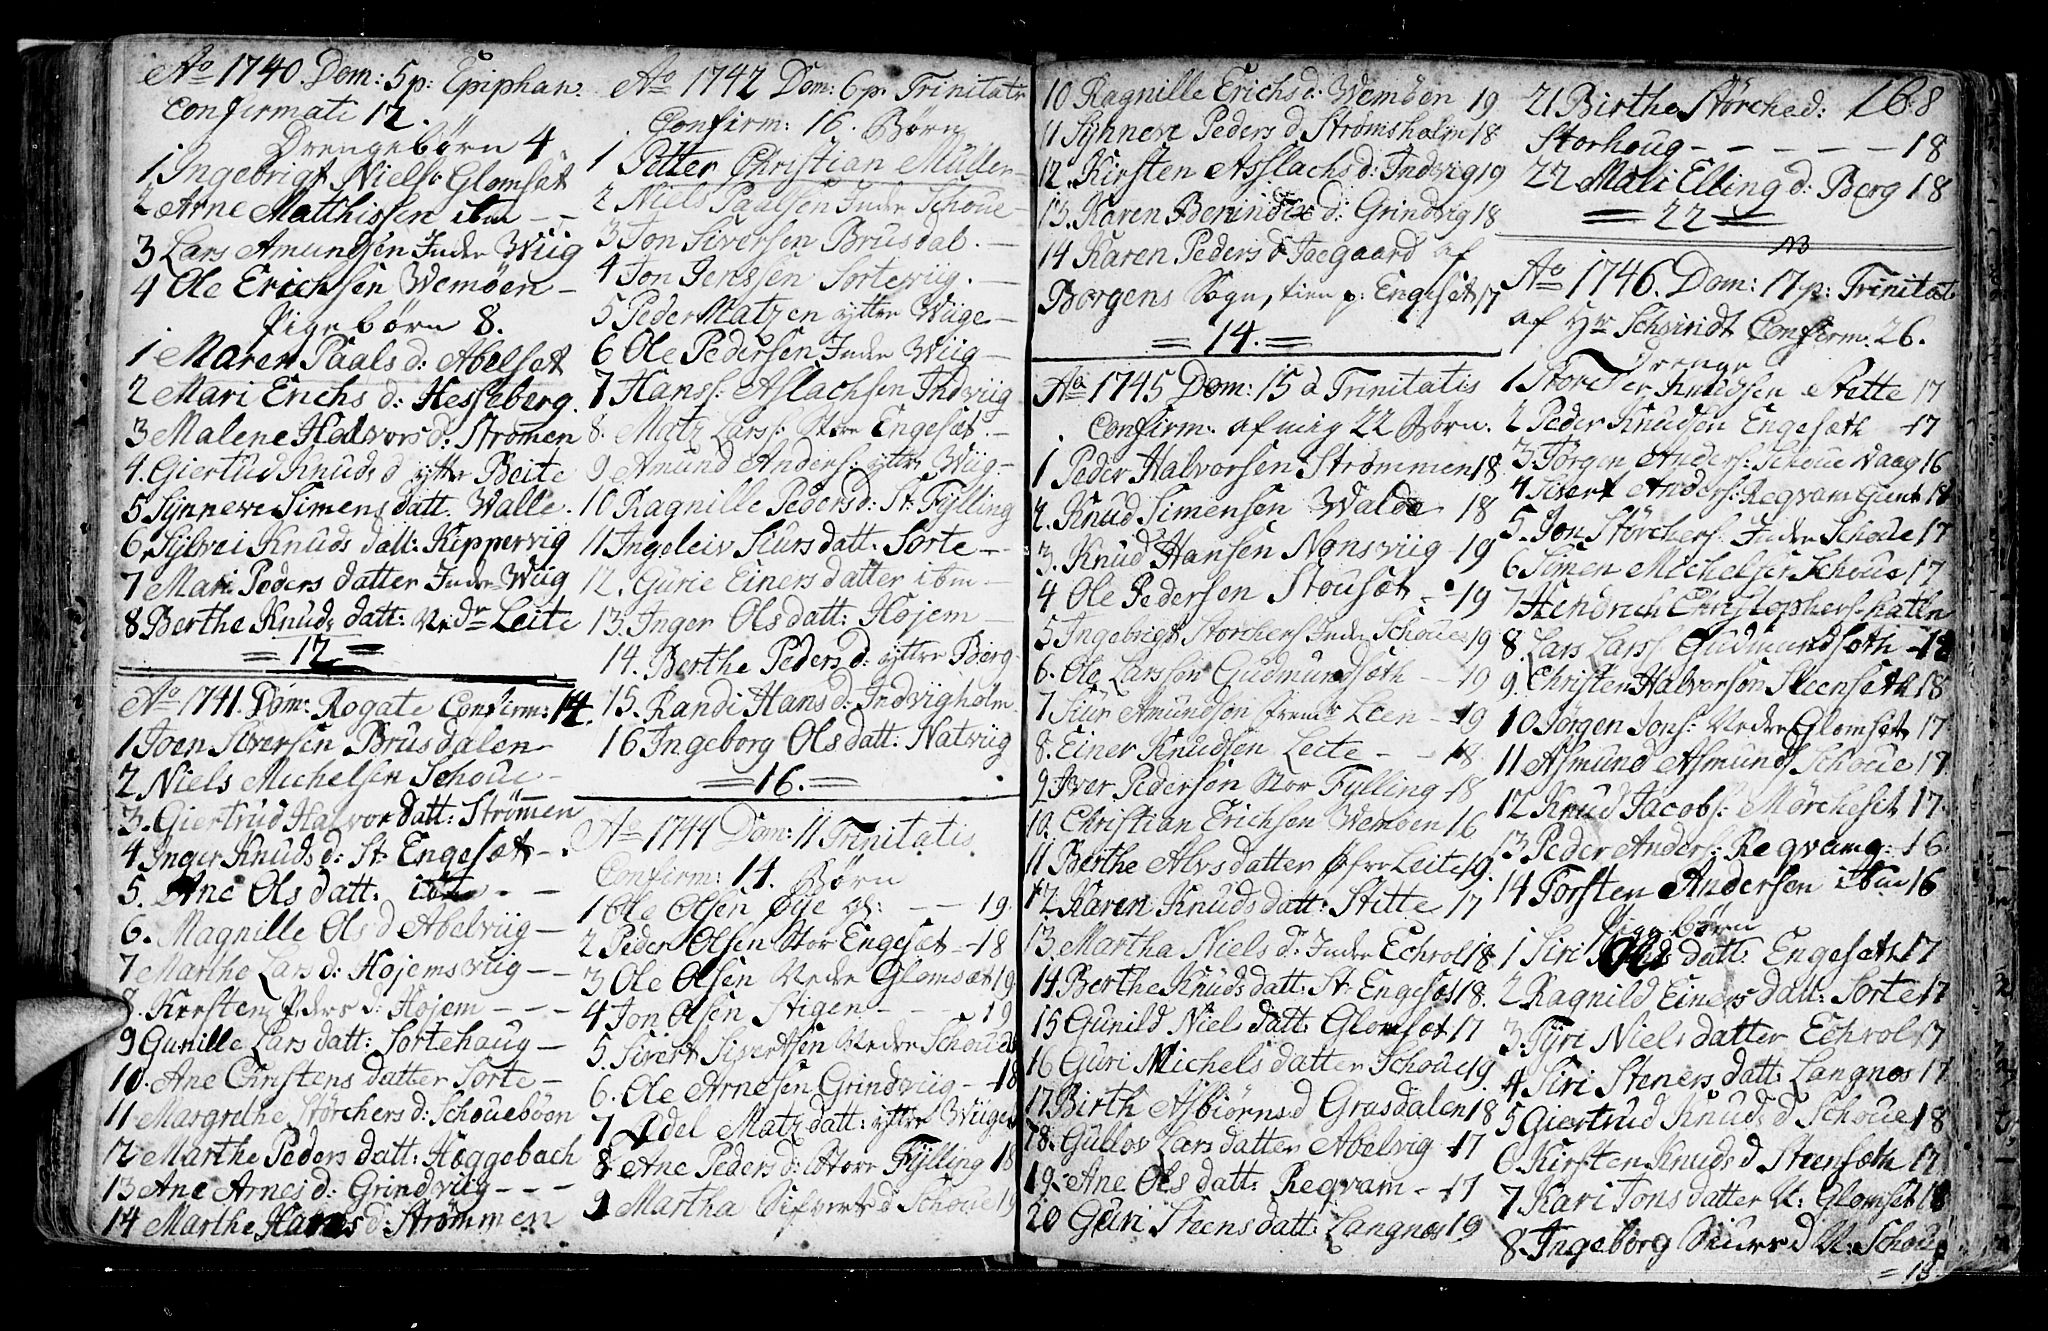 Ao 1740. Dom: 5 p: Epiphan:
Confirmati 12.
Drengebørn 4.
1 Ingebrigt Niels: Glomset
2 Arne Matthissen ibm - -
3 Lars Amundsen Indre Wiig
4 Ole Erichsen Wemøen -
Pigebørn 8.
1 Maren Paals d: Abelset
2 Mari Erichs d: Hesseberg.
3 Malene Holvors d: Strømen
4. Giertrud Knuds d ytre Beite
5 Synneve Simens datt. Walle.
6. Sylvei Knuds datt: Kippervig
7 Mari Peders datter Indre Wiig
8 Berthe Knuds datt: Nedr Leite
= 12 =
Ao 1741. Dom: Rogate Confirm: 14.
1 Joen Siversen Brusdalen
2 Niels Michelsen Schoue -
3. Giertrud Halvor datt: Strømen
4 Inger Knuds d: St: Engesæt -
5. Ane Ols datt: ibm - -
6. Magnille Ols d Abelviig -
7 Marthe Lars d: Højemsviig - -
8. Kirsten Peders d: Højem - - -
9 Gunille Lars datt: Sortehaug -
10. Ane Christens datter Sorte -
11 Margrethe Størchers d: Schouebøen
12 Marthe Peders datt: Høggebach
13 Ane Arnes d: Grindviig - - -
14 Marthe Hanss d: Strømmen
Ao 1742 Dom: 6 p. Trinitatis
Confirm: 16. Børn
1 Petter Christian Müller
2 Niels Paalsen Indre Schoue -
3 Jon Siversen Brusdal. -
4 Jon Jenssen Sorteviig. -
5 Peder Matzen ytre Wiige -
6 Ole Pedersen Indre Wiig -
7 Hanss: Aslachsen Indviig
8. Matz Larss: Store Engesæt. -
9 Amund Anders: ytre Wiig -
10 Ragnille Peders d: St: Fylling
11 Ingeleiv Siurs datt: Sorte - -
12. Gurie Einers datter ibm -
13. Inger Ols datt: Højem -
14. Berthe Peders d: yttre Berg
15. Randi Hans d: Indvigholm
16 Ingeborg Ols datt: Natviig
= 16. =
Ao 1744 Dom: 11 Trinitatis
Confirm: 14. Børn
1 Ole Olsen Øye gs: - - 19
2 Peder Olsen Stor Engesæt - 18
3 Ole Olsen Nedre Glomsæt 19
4 Jon Olsen Stigen - - - 19
5. Sivert Sivertsen Nedre Schoue
6. Ole Arnesen Grindviig - - 18
7 Adel Matz datt: yttre Wiige
8 Ane Peders d: Store Fylling 18
9 Martha Sifverts d Schoue 19
10 Ragnille Erichs d: Wemøen 19
11 Synneve Peders d Strømsholm 18
12. Kirsten Asslachs d: Indvig 19
13. Karen Berindtz d: Grindvig 18
14 Karen Peders d Jaegaard af
Borgens Sogn, tien p: Engeset 17
= 14. =
Ao 1745 Dom: 15 a Trinitatis
Confirm: af mig 22 Børn.
1 Peder Halvorsen Strømmen 18.
2. Knud Simensen Walde 18
3. Knud Hansen Nonsviig - 19
4 Ole Pedersen Stousæt - 19
5 Ingebrigt Størchers: Indre Schoue 19
6. Ole Larssøn Gudmundsæth - - 19
7 Siur Amundsøn frem: Leen - 19
8. Einer Knudsen Leite - - 18.
9 Iver Pedersen Stor Fylling - 18
10. Christian Erichsen Wemøen 16
11 Berthe Alvs datter Øfre Leite 19.
12 Karen Knuds datt: Stette 17
13 Martha Niels dr Indre Echrol 18
14 Berthe Knuds datt: St: Engeset 18.
15 Gunild Niels datt: Glomsæt 17
16 Guri Michels datter Schoue 19
17 Birth Asbiørns d Grasdalen 18
18. Gullov Lars datter Abelvig - 17
19. Ane Ols datt: Reqvam - 17
20 Guri Steens datt: Langnæs 19
21 Birthe Størche d: 168
Storhoug - - - - - 18
22 Mali Elling d: Berg 18
= 22 =
NB
Ao 1746. Dom: 17 p: Trinitat
af Hr Schmidt Confirm: 26.
Drenge
1 Store Knudsen Stette 17
2 Peder Knudsen Engesæth 17
3 Jørgen Anders: Schoue Waag 16
4 Sivert Anders: Reqvam 18
5. Jon Størchers: Indre Schoue 17
6 Simen Michelsen Schoue 17
7 Hendrich Christophers: Hatlen
8. Lars Larss: Gudmundsæth - 18
9. Christen Halvorsøn Steensæth 18
10 Jørgen Jons: Nedre Glomset 17
11 Asmund Asmunds Schoue 17
12 Knud Jacobs: Mørcheset 17
13 Peder Anders: Reqvamg: 16.
14 Torsten Andersen ibm 16
Pigebørn
1 Siri Ols datt: Engesæth 17
2 Ragnild Einers datt: Sorte 17
3. Tyri Niels datter Echrol 17
4 Siri Steners datt: Langnæs 17
5 Giertrud Knuds d Schoue 18
6 Kirsten Knuds d Steensæth 17
7 Kari Jons datter N: Glomset 18
8. Ingeborg Siurs d N: Schoug
= 18